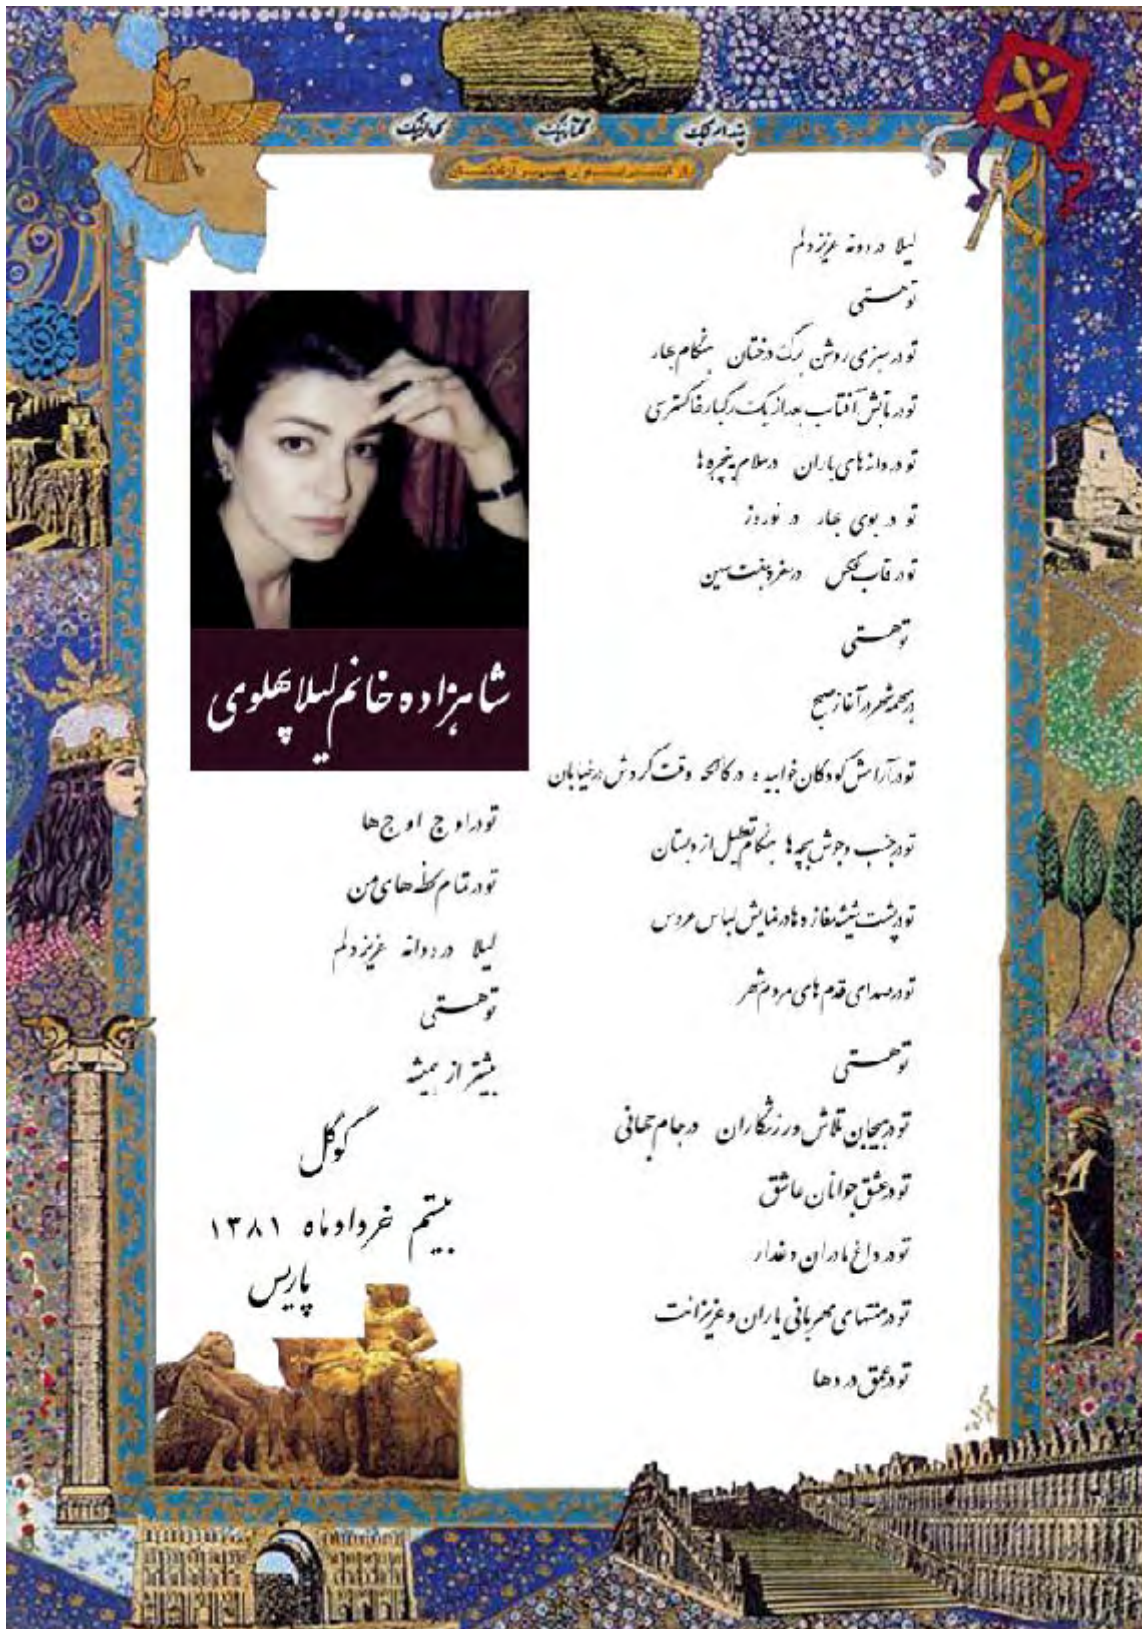 پندار نیک
گفتار نیک
کردار نیک
لیلا دردونه عزیز دلم
تو هستی
تو در سبزی روشن برگ درختان هنگام بهار
تو در تابش آفتاب بعد از یک رگبار خاکستری
تو در دانه های باران در سلام پنجره ها
تو در بوی بهار در نوروز
تو در قاب عکس در سفره هفت سین
تو هستی
در همهمه شهر در آغاز صبح
تو در آرامش کودکان خوابیده در کالسکه وقت گردش در خیابان
تو در جنب و جوش بچه ها هنگام تعطیل از دبستان
تو در پشت شیشه مغازه ها در نمایش لباس عروس
تو در صدای قدم های مردم شهر
تو هستی
تو در هیجان تلاش ورزشکاران در جام جهانی
تو در عشق جوانان عاشق
تو در داغ مادران دغدار
تو در منتهای مهربانی یاران و عزیزانت
تو در عمق دردها
شاهزاده خانم لیلا پهلوی
تو در اوج اوج ها
تو در تمام لحظه های من
لیلا دردانه عزیز دلم
تو هستی
بیشتر از همیشه
گوگل
بیستم خرداد ماه ۱۳۸۱
پاریس